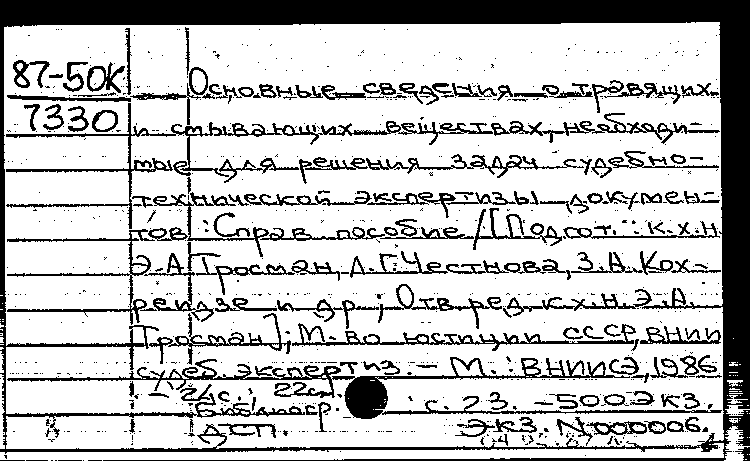 87-50К
7330
Основные сведения о травящих
и смывающих веществах, необходи-
мые для решения задач судебно-
технической экспертизы докумен-
тов : Справ пособие / [Подгот.: к.х.н.
Э.А Тросман, Л.Г.Честнова, З.А. Кох-
реидзе и др ; Отв. ред. к.х.н. Э.А.
Тросман]; М-во юстиции СССР, ВНИИ
судеб. экспертиз. – М. : ВНИИСЭ, 1986
– 24с., 22см.
Библиогр. : с. 23. – 500экз.
ДСП. Экз. N000006.